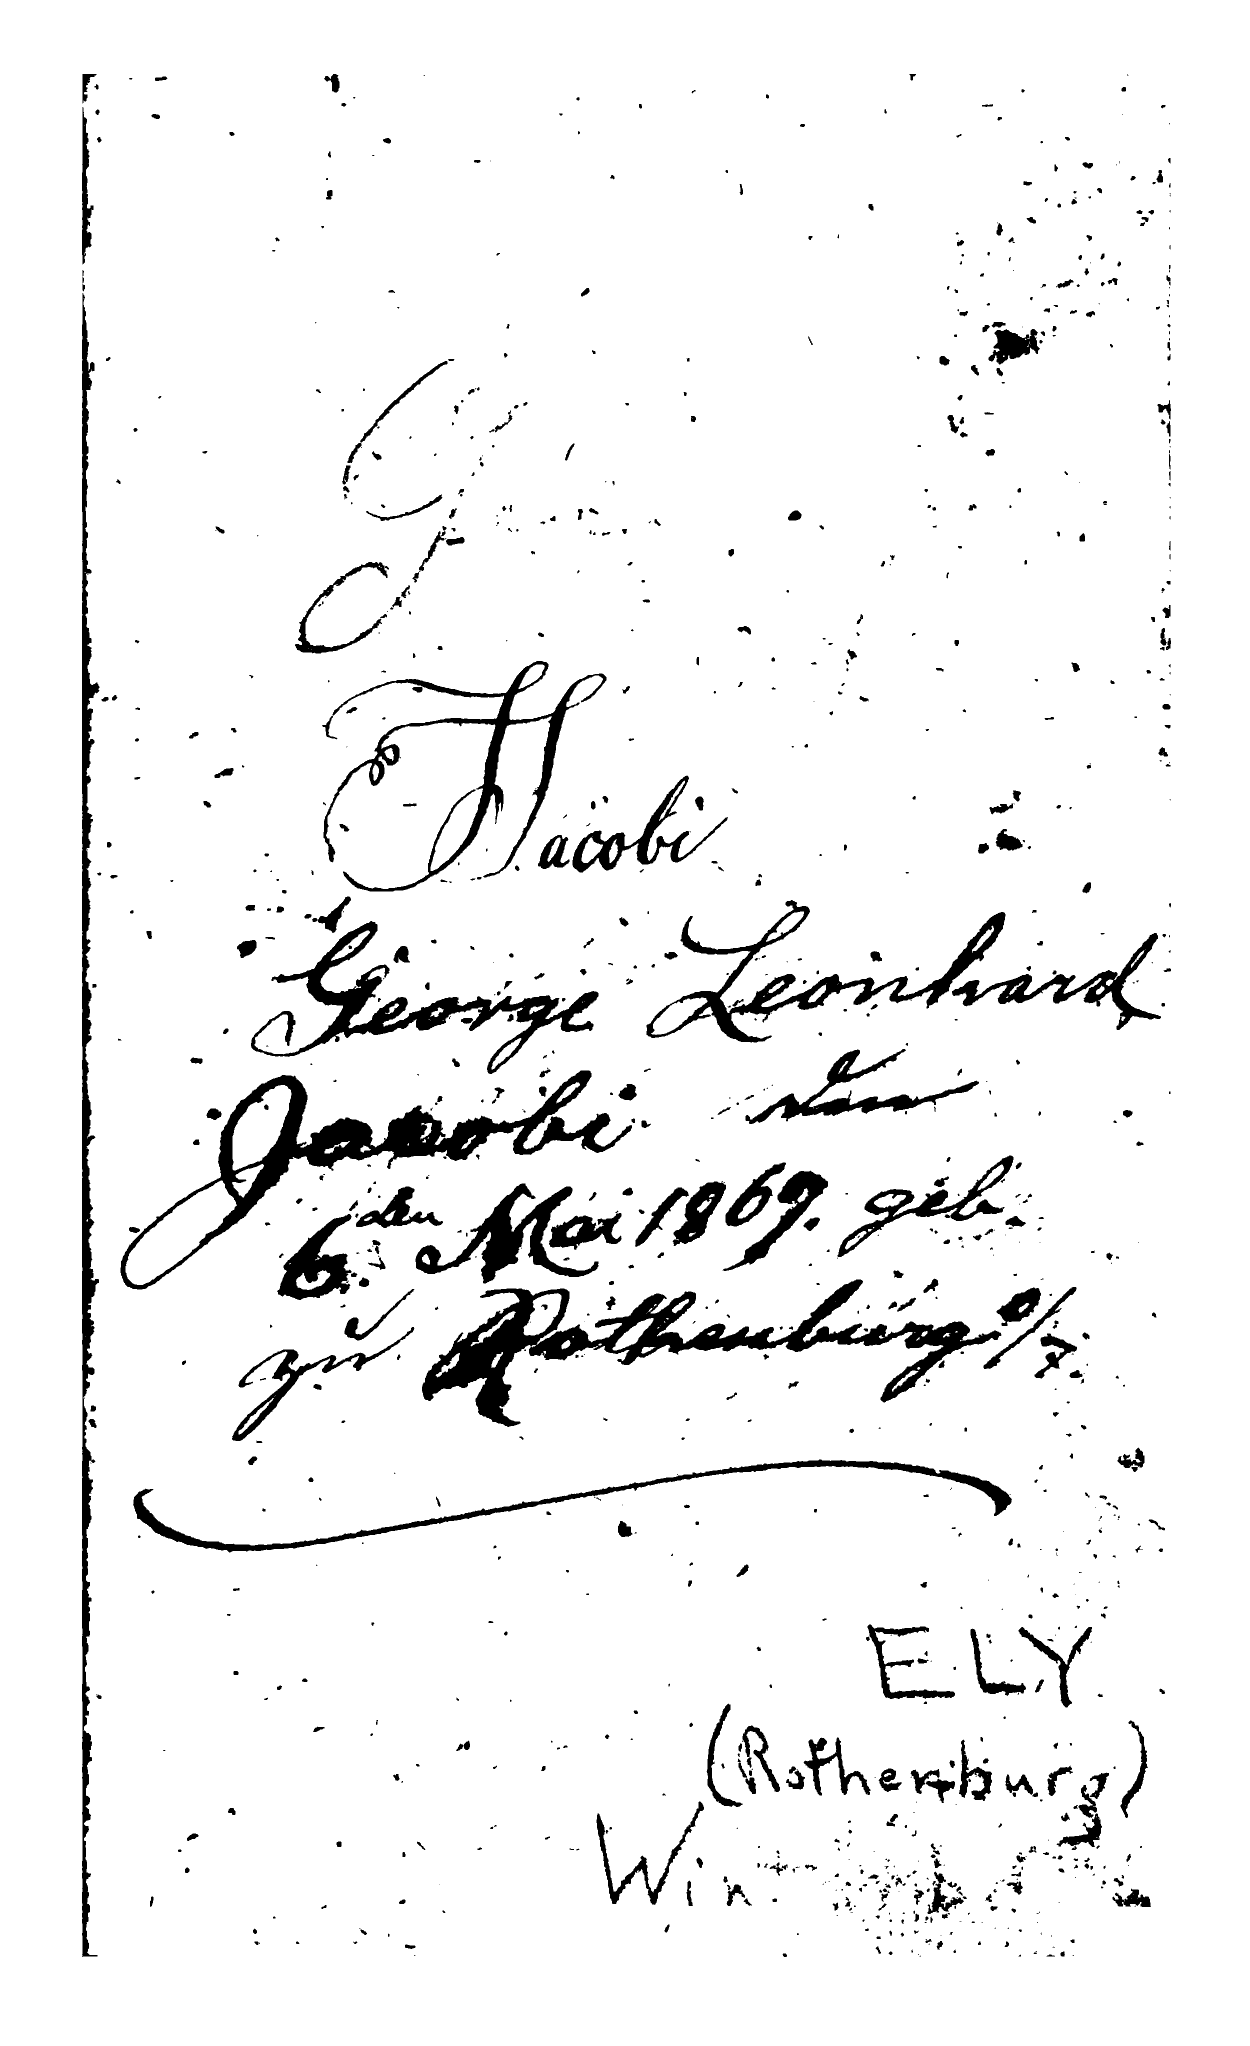 G
Jacobi
George Leonhard
Jacobi den
6. den Mai 1869. geb.
zu Rothenburg o/T.
ELY
(Rothenburg)